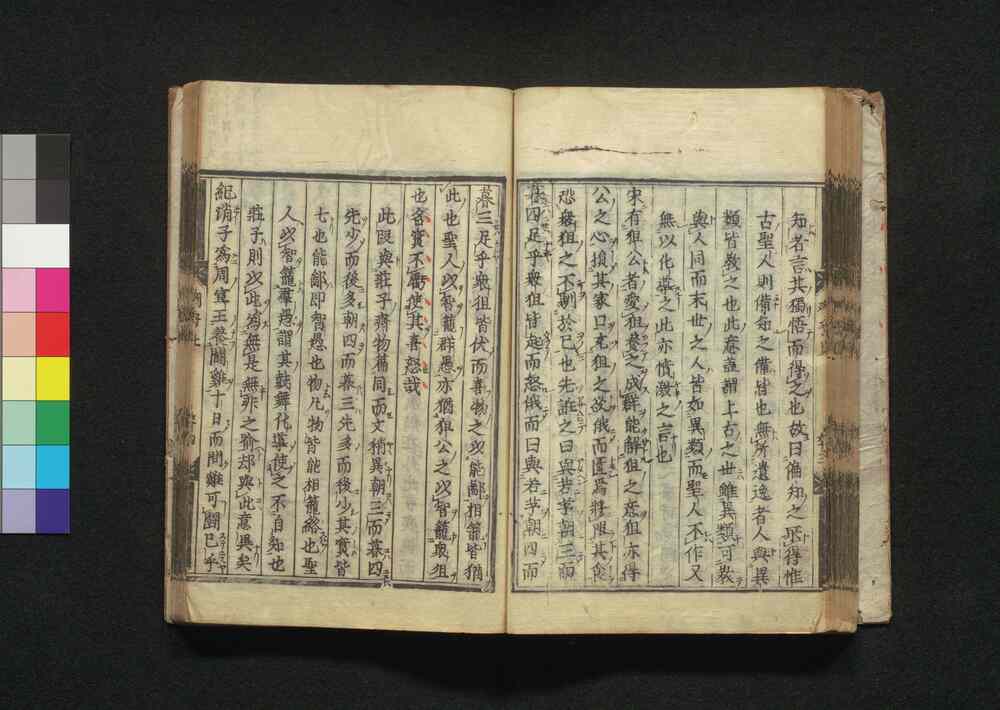 知者言其獨悟而得之也故曰偏知之所得惟
古聖人則備知之備皆也無所遺逸者人與異
類皆敎之也此意蓋謂上古之世雖異類可敎
與人同而末世之人皆如異類而聖人不作又
無以化導之此亦憤激之言也
宋有狙公者愛狙養之成群能解狙之意狙亦得
公之心損其家口充狙之欲俄而匱焉將限其食
恐衆狙之不馴於己也先誑之曰與若芧朝三而
暮四足乎衆狙皆起而怒俄而曰與若芧朝四而
暮三足乎衆狙皆伏而喜物之以能鄙相籠皆猶
此也聖人以智籠群愚亦猶狙公之以智籠衆狙
也名實不虧使其喜怒哉
此段與莊子齊物篇同而文稍異朝三而暮四
先少而後多朝四而暮三先多而後少其實皆
七也能鄙即智愚也物凡物皆能相籠絡也聖
人以智籠羣愚謂其鼓舞化導使之不自知也
莊子則以此為無是無非之喻却與此意異矣
紀渻子為周宣王養鬪雞十日而問雞可鬪已乎